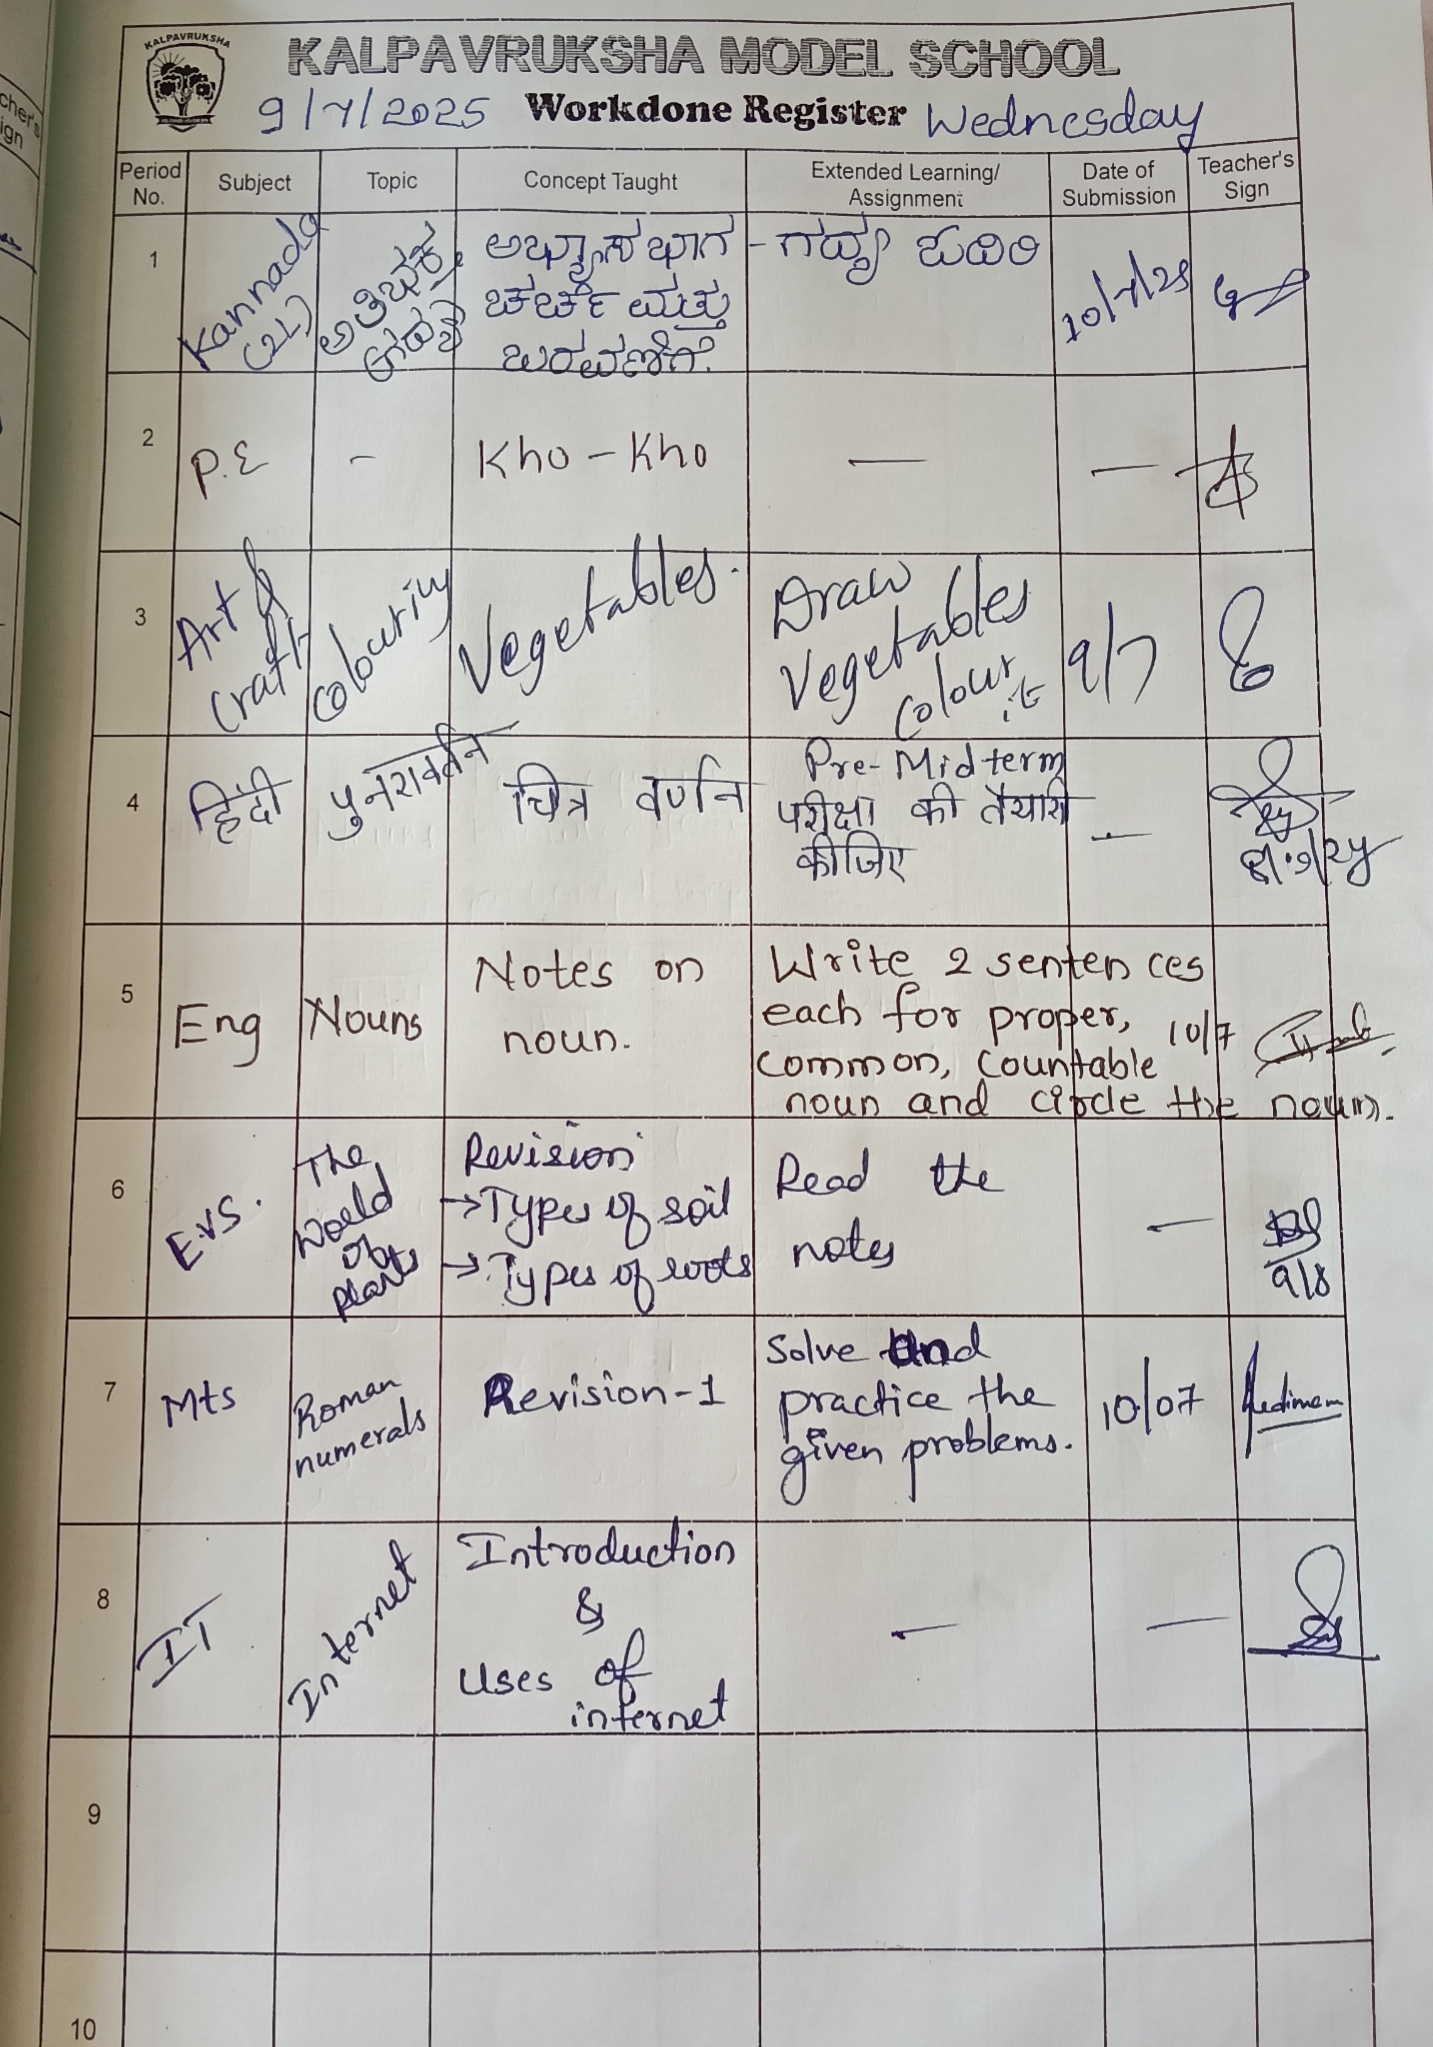 KALPAVRUKSHA
KALPAVRUKSHA MODEL SCHOOL
9/7/2025 Workdone Register Wednesday
Period No. Subject Topic Concept Taught Extended Learning/ Assignment Date of Submission Teacher's Sign
1 Kannada (2L) ಅಭ್ಯಾಸ ಭಾಗ - ಗದ್ಯ ಓದಿರಿ 10/7/25
ಚರ್ಚೆ ಮತ್ತು
ಬರವಣಿಗೆ.
2 P.E - Kho - Kho — —
3 Art & Craft Colouring Vegetables. Draw Vegetables colour it 9/7
4 हिंदी पुनरावर्तन चित्र वर्णन Pre-Midterm
परीक्षा की तैयारी —
कीजिए
5 Eng Nouns Notes on noun. Write 2 sentences
each for proper, 10/7
common, countable
noun and circle the nouns.
6 E.V.S. The World of plants Revision Read the notes —
→ Types of soil
→ Types of roots 9/8
7 Mts Roman numerals Revision-1 Solve and
practice the 10/07
given problems.
8 IT Internet Introduction — —
&
Uses of
internet
9
10